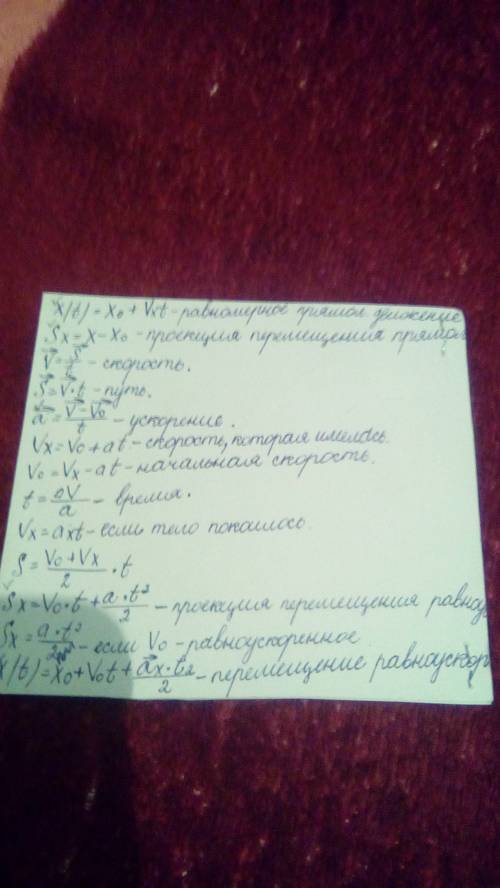 x(t) = x₀ + Vxt - равномерное прямол. движение
Sx = x - x₀ - проекция перемещения прямол
V⃗ = S⃗/t - скорость.
S⃗ = V⃗ · t - путь.
a⃗ = (V⃗ - V⃗₀)/t - ускорение.
Vx = V₀ + at - скорость, которая имелась.
V₀ = Vx - at - начальная скорость.
t = ΔV/a - время.
Vx = axt - если тело покоилось.
S = (V₀ + Vx)/2 · t
Sx = V₀ · t + (a · t²)/2 - проекция перемещения равноу
Sx = (a · t²)/2 - если V₀ - равноускоренное
x(t) = x₀ + V₀t + (ax · t²)/2 - перемещение равноускор